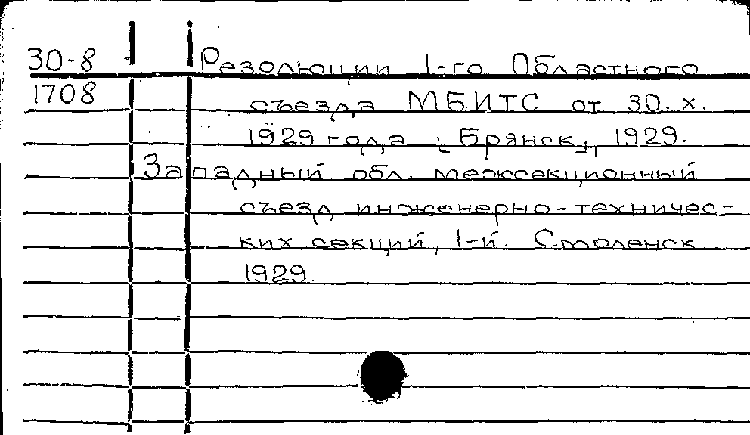 30-8 Резолюции 1-го Областного
1708 съезда МБИТС от 30. х.
1929 года [Брянск], 1929.
Западный обл. межсекционный
съезд инженерно-техничес-
ких секций, 1-й. Смоленск
1929.